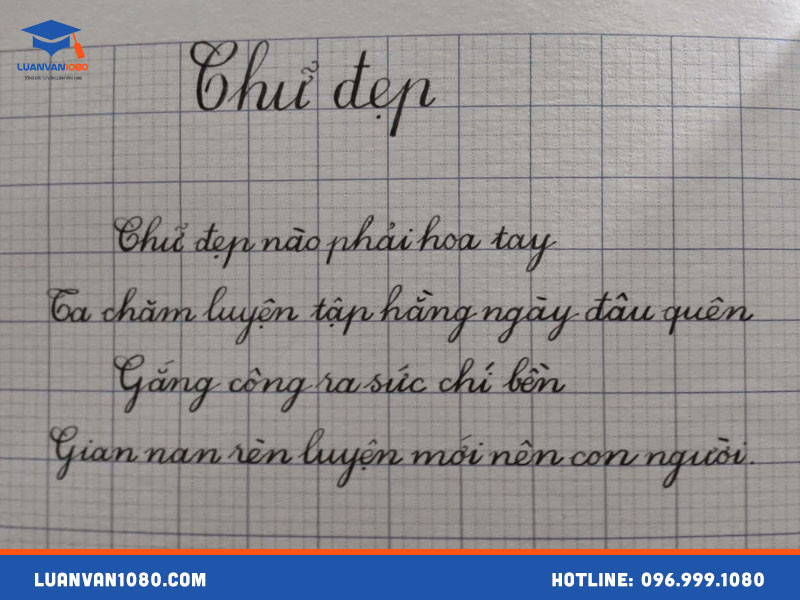 LUANVAN1080
Chữ đẹp
Chữ đẹp nào phải hoa tay
Ta chăm luyện tập hằng ngày đâu quên
Gắng công ra sức chí bền
Gian nan rèn luyện mới nên con người.
LUANVAN1080.COM
HOTLINE: 096.999.1080